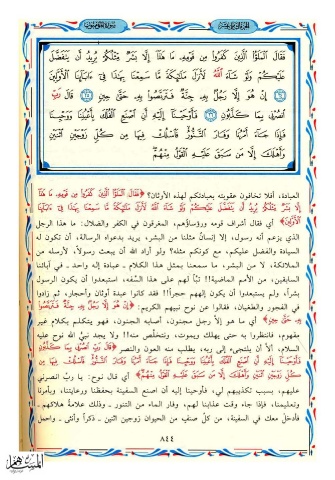 فَقَالَ ٱلْمَلَؤُا۟ ٱلَّذِينَ كَفَرُوا۟ مِن قَوْمِهِۦ مَا هَٰذَآ إِلَّا بَشَرٌ مِّثْلُكُمْ يُرِيدُ أَن يَتَفَضَّلَ
عَلَيْكُمْ وَلَوْ شَآءَ ٱللَّهُ لَأَنزَلَ مَلَٰٓئِكَةً مَّا سَمِعْنَا بِهَٰذَا فِىٓ ءَابَآئِنَا ٱلْأَوَّلِينَ
﴿٢٤﴾ إِنْ هُوَ إِلَّا رَجُلٌۢ بِهِۦ جِنَّةٌ فَتَرَبَّصُوا۟ بِهِۦ حَتَّىٰ حِينٍ ﴿٢٥﴾ قَالَ رَبِّ
ٱنصُرْنِى بِمَا كَذَّبُونِ ﴿٢٦﴾ فَأَوْحَيْنَآ إِلَيْهِ أَنِ ٱصْنَعِ ٱلْفُلْكَ بِأَعْيُنِنَا وَوَحْيِنَا
فَإِذَا جَآءَ أَمْرُنَا وَفَارَ ٱلتَّنُّورُ فَٱسْلُكْ فِيهَا مِن كُلٍّ زَوْجَيْنِ ٱثْنَيْنِ
وَأَهْلَكَ إِلَّا مَن سَبَقَ عَلَيْهِ ٱلْقَوْلُ مِنْهُمْ
العبادة، أفلا تخافون عقوبته بعبادتكم لهذه الأوثان؟ ﴿فَقَالَ ٱلْمَلَؤُا۟ ٱلَّذِينَ كَفَرُوا۟ مِن قَوْمِهِۦ مَا هَٰذَآ
إِلَّا بَشَرٌ مِّثْلُكُمْ يُرِيدُ أَن يَتَفَضَّلَ عَلَيْكُمْ وَلَوْ شَآءَ ٱللَّهُ لَأَنزَلَ مَلَٰٓئِكَةً مَّا سَمِعْنَا بِهَٰذَا فِىٓ ءَابَآئِنَا
ٱلْأَوَّلِينَ﴾ أي فقال أشراف قومه ورؤساؤهم، المغرقون في الكفر والضلال: ما هذا الرجل
الذي يزعم أنه رسول، إلا إنسانٌ مثلنا من البشر، يريد بدعواه الرسالة، أن تكون له
السيادة والفضل عليكم، مع كونكم مثله؟ ولو أراد الله أن يبعث رسولاً، لأرسله من
الملائكة، لا من البشر، ما سمعنا بمثل هذا الكلام ـ عبادة إله واحد ـ في آبائنا
السابقين، من الأمم الماضية!! تباً لهم على هذا السَّفه، استبعدوا أن يكون الرسول
بشراً، ولم يستبعدوا أن يكون إلههم حجراً!! فقد كانوا عبدة أوثان وأحجار، ثم زادوا
في الفجور والطغيان، فقالوا عن نوح نبيهم الكريم: ﴿إِنْ هُوَ إِلَّا رَجُلٌۢ بِهِۦ جِنَّةٌ فَتَرَبَّصُوا۟
بِهِۦ حَتَّىٰ حِينٍ﴾ أي ما هو إلا رجل مجنون، أصابه الجنون، فهو يتكلم بكلام غير
مفهوم، فانتظروا به حتى يهلك ويموت، ونتخلَّص منه!! ولا يجد نبيُّ الله نوح عليه
السلام، إلاَّ أن يلتجىء إلى ربه، يطلب منه العون والنصر ﴿قَالَ رَبِّ ٱنصُرْنِى بِمَا كَذَّبُونِ
فَأَوْحَيْنَآ إِلَيْهِ أَنِ ٱصْنَعِ ٱلْفُلْكَ بِأَعْيُنِنَا وَوَحْيِنَا فَإِذَا جَآءَ أَمْرُنَا وَفَارَ ٱلتَّنُّورُ فَٱسْلُكْ فِيهَا مِن
كُلٍّ زَوْجَيْنِ ٱثْنَيْنِ وَأَهْلَكَ إِلَّا مَن سَبَقَ عَلَيْهِ ٱلْقَوْلُ مِنْهُمْ﴾ أي قال نوح: يا ربِّ انصرني
عليهم، بسبب تكذيبهم لي، فأوحينا إليه أن اصنع السفينة بحفظنا ورعايتنا، وبأمرنا
وتعليمنا، فإذا جاء وقت عذابنا لهم، وفار الماء من التنور ـ وذلك علامة هلاكهم ـ
فأدخل معك في السفينة، من كلِّ صنفٍ من الحيوان زوجين اثنين ـ ذكراً وأنثى ـ واحمل
٨٤٤